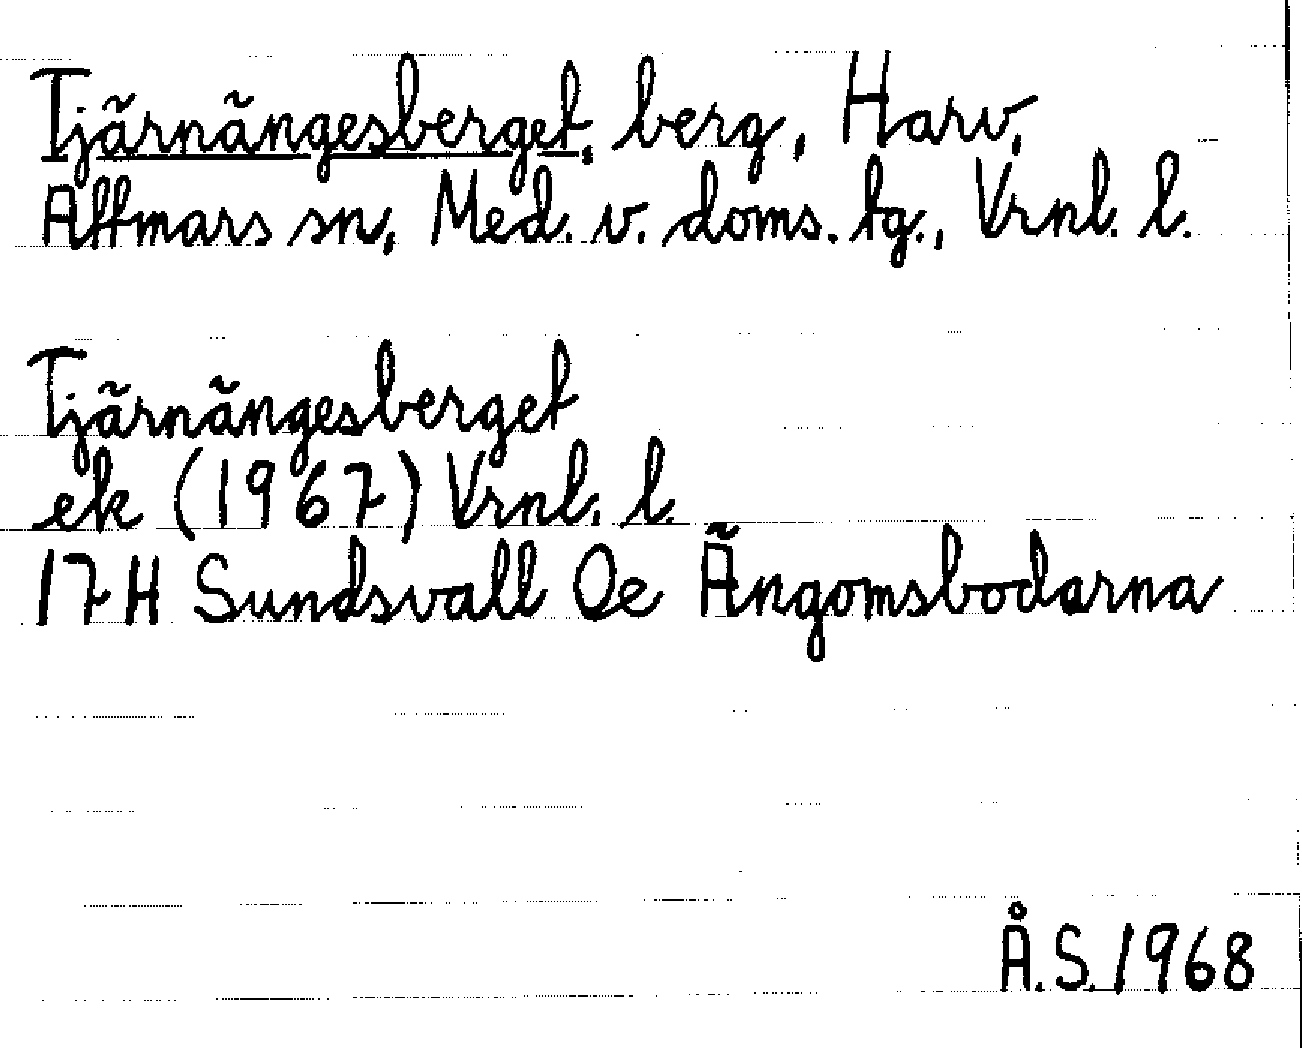 Tjärnängesberget, berg, Harv,
Attmars sn, Med. v. doms. tg., Vrnl. l.
Tjärnängesberget
ek (1967) Vrnl. l.
17 H Sundsvall Oe Ängomsbodarna
Å.S. 1968